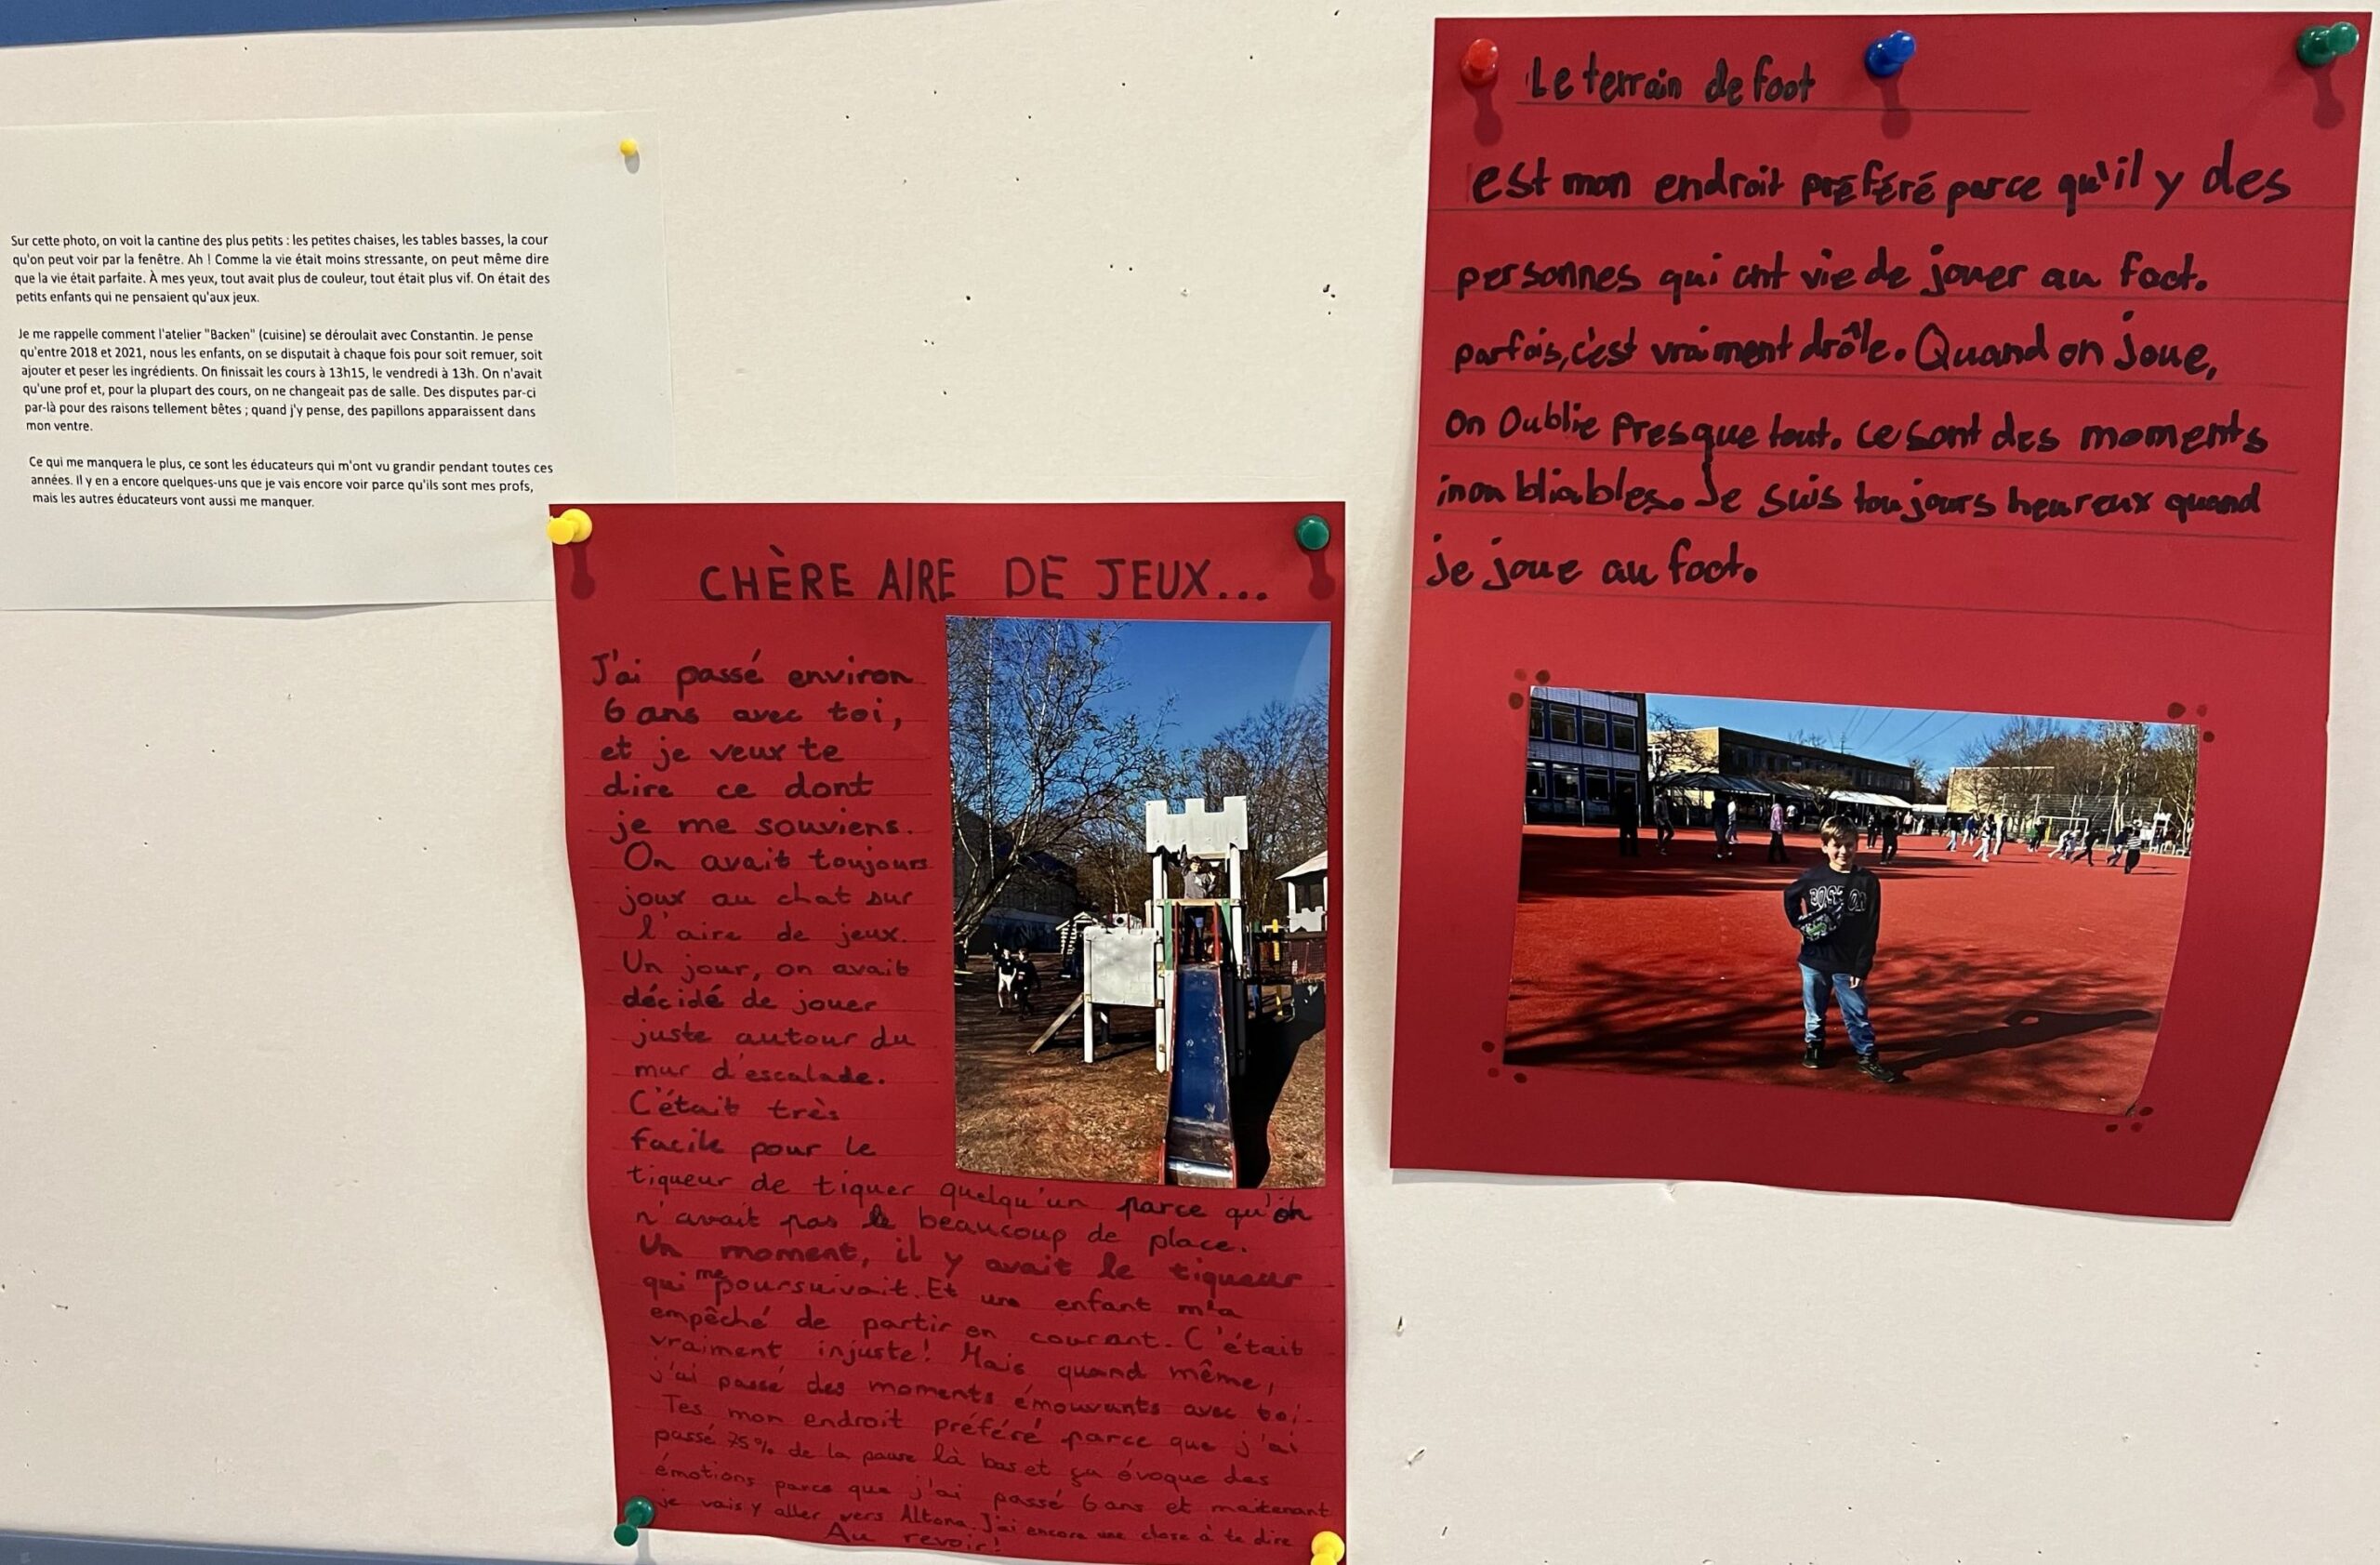 Sur cette photo, on voit la cantine des plus petits : les petites chaises, les tables basses, la cour
qu'on peut voir par la fenêtre. Ah ! Comme la vie était moins stressante, on peut même dire
que la vie était parfaite. À mes yeux, tout avait plus de couleur, tout était plus vif. On était des
petits enfants qui ne pensaient qu'aux jeux.
Je me rappelle comment l'atelier "Backen" (cuisine) se déroulait avec Constantin. Je pense
qu'entre 2018 et 2021, nous les enfants, on se disputait à chaque fois pour soit remuer, soit
ajouter et peser les ingrédients. On finissait les cours à 13h15, le vendredi à 13h. On n'avait
qu'une prof et, pour la plupart des cours, on ne changeait pas de salle. Des disputes par-ci
par-là pour des raisons tellement bêtes ; quand j'y pense, des papillons apparaissent dans
mon ventre.
Ce qui me manquera le plus, ce sont les éducateurs qui m'ont vu grandir pendant toutes ces
années. Il y en a encore quelques-uns que je vais encore voir parce qu'ils sont mes profs,
mais les autres éducateurs vont aussi me manquer.
CHÈRE AIRE DE JEUX...
J'ai passé environ
6 ans avec toi,
et je veux te
dire ce dont
je me souviens.
On avait toujours
joux au chat sur
l'aire de jeux.
Un jour, on avait
décidé de jouer
juste autour du
mur d'escalade.
C'était très
facile pour le
tiqueur de tiquer quelqu'un parce qu'on
n'avait pas beaucoup de place.
Un moment, il y avait le tiqueur
qui me poursuivait. Et un enfant m'a
empêché de partir en courant. C'était
vraiment injuste! Mais quand même,
j'ai passé des moments émouvants avec toi.
Tes mon endroit préféré parce que j'ai
passé 75% de la pause là bas et ça évoque des
émotions parce que j'ai passé 6 ans et maitenant
je vais y aller vers Altona. J'ai encore une close à te dire
Au revoir!
Le terrain de foot
est mon endroit préféré parce qu'il y des
personnes qui ont vie de jouer au foot.
parfois, c'est vraiment drôle. Quand on joue,
on oublie presque tout. ce sont des moments
inoubliables. Je suis toujours heureux quand
je joue au foot.
BOSTON